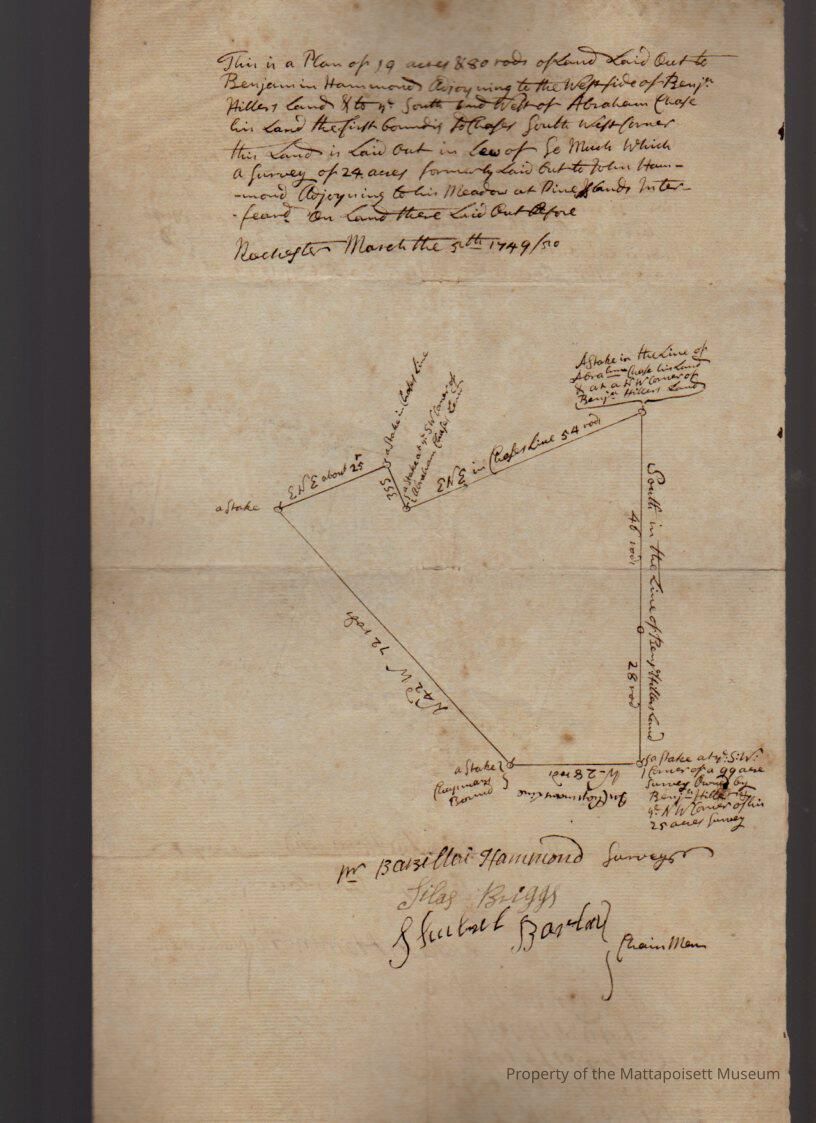 This is a Plan of 19 acres & 80 rods of Land Laid Out to
Benjamin Hammond Adjoyning to the West side of Benjn
Hillers Land & to ye South and West of Abraham Chase
his Land the first bound is Chases South West Corner
this Land is Laid Out in Lew of So Much Which
a Survey of 24 acres formerly Laid Out to John Ham-
-mond Adjoyning to his Meadow at Pine Islands Inter-
-feard On Land there Laid Out Before
Rochester March the 5th 1749/50
A Stake in the Line of
Abraham Chase his Land
& at a N W Corner of
Benjn Hillers Land
a Stake in Chases Line
a Stake at ye S W Corner of
Abraham Chases Land
ENE in Chases Line 54 rods
ENE about 25 r
a Stake
South in the Line of Benjn Hillers Land
46 rods
28 rod
N 42 W 72 rods
a Stake
Chapmans
Bound
W - 28 rd
a Stake at ye S:W:
Corner of a 99 acre
Survey Owned by
Benjn Hiller
ye N W Corner of his
25 acres Survey
pr Barzillai Hammond Surveyor
Silas Briggs
Shubael Barlow
Chain Men
Property of the Mattapoisett Museum